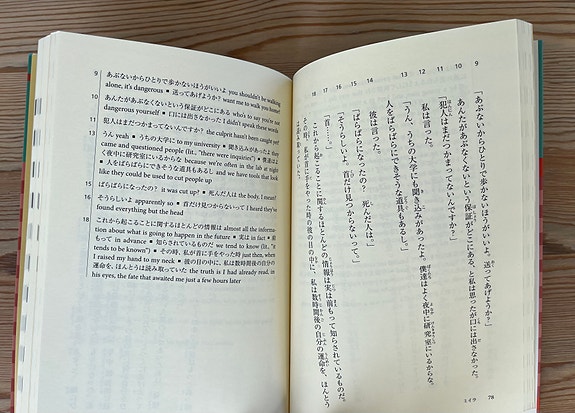 9 「あぶないからひとりで歩かないほうがいいよ。送ってあげようか?」
10 あんたがあぶなくないという保証がどこにあると私は思ったが口には出さなかった。
11 「犯人はまだつかまってないんですか?」
12 私は言った。
13 「うん、うちの大学にも聞き込みがあったよ。僕達はよく夜中に研究室にいるからな。
人をばらばらにできそうな道具もあるし。」
14 彼は言った。
15 「ばらばらになったの? 死んだ人は。」
16 「そうらしいよ、首だけ見つからないって。」
17 「首……。」
18 これから起こることに関するほとんどの情報は実は前もって知らされているものだ。
その時、私が首に手をやった時の彼の目の中に、私は数時間後の自分の運命を、ほんとう
は読み取っていた。
ミイラ 78
9 あぶないからひとりで歩かないほうがいいよ you shouldn't be walking
alone, it's dangerous ▪ 送ってあげようか? want me to walk you home?
10 あんたがあぶなくないという保証がどこにある who's to say you're not
dangerous yourself ▪ 口には出さなかった I didn't speak these words
11 犯人はまだつかまってないんですか? the culprit hasn't been caught yet?
13 うん yeah ▪ うちの大学に to my university ▪ 聞き込みがあったよ they
came and questioned people (lit., "there were inquiries") ▪ 僕達はよ
く夜中に研究室にいるからな because we're often in the lab at night
▪ 人をばらばらにできそうな道具もあるし and we have tools that look
like they could be used to cut people up
15 ばらばらになったの? it was cut up? ▪ 死んだ人は the body, I mean?
16 そうらしいよ apparently so ▪ 首だけ見つからないって I heard they've
found everything but the head
18 これから起こることに関するほとんどの情報は almost all the informa-
tion about what is going to happen in the future ▪ 実は in fact ▪ 前
もって in advance ▪ 知らされているものだ we tend to know (lit., "it
tends to be known") ▪ その時、私が首に手をやった時 just then, when
I raised my hand to my neck ▪ 彼の目の中に、私は数時間後の自分の
運命を、ほんとうは読み取っていた the truth is I had already read, in
his eyes, the fate that awaited me just a few hours later